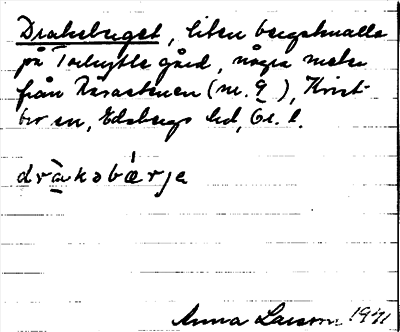 Drakeberget, liten bergsknalle
på Torhyttle gård, några meter
från Råvastenen (nr. 9), Krist-
ber sn, Edsbergs hd, Ör. l.
dràkəbǽrjə
Anna Larson 1971